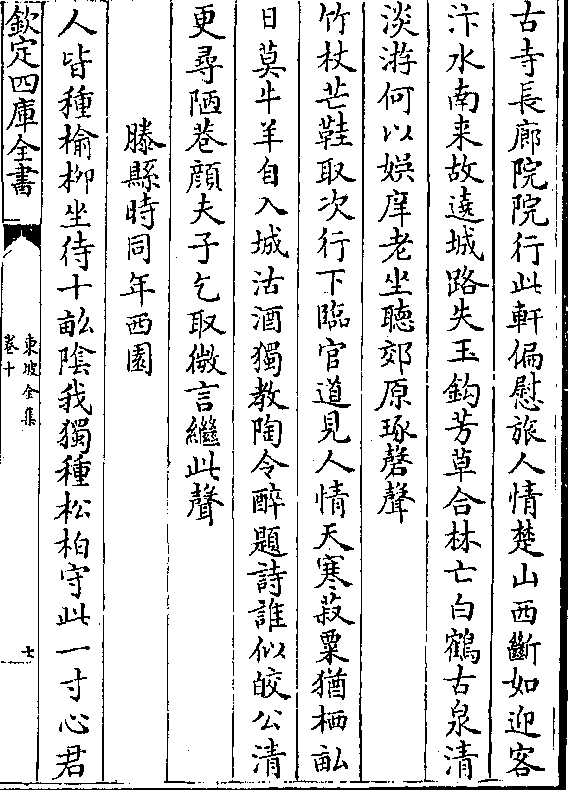 古寺長廊院院行此軒偏慰旅人情楚山西斷如迎客
汴水南来故遶城路失玉鈎芳草合林亡白鶴古泉清
淡游何以娯庠老坐聴郊原琢磬聲
竹杖芒鞋取次行下臨官道見人情天寒菽粟猶栖畝
日莫牛羊自入城沽酒獨教陶令醉題詩誰似皎公清
更尋陋巷顔夫子乞取微言繼此聲
滕縣時同年西園
人皆種榆柳坐待十畝陰我獨種松柏守此一寸心君
欽定四庫全書
東坡全集
卷十
七